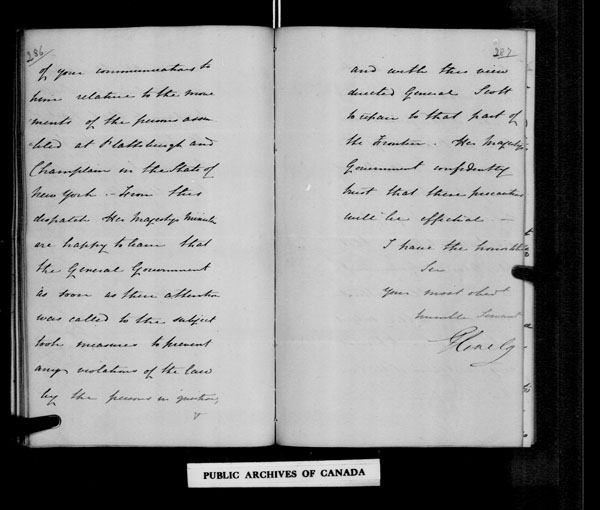 286
of your communications to
him relative to the move
ments of the persons assem
bled at Plattsburgh and
Champlain in the State of
New York. — From this
despatch Her Majestys Ministers
are happy to learn that
the General Government
as soon as their attention
was called to the subject
took measures to prevent
any violation of the law
by the persons in question,
287
and with this view
directed General Scott
to repair to that part of
the Frontier. Her Majestys
Government confidently
trust that these precautions
will be effectual. —
I have the honor to be
Sir
Your most obedt
humble Servant
PUBLIC ARCHIVES OF CANADA